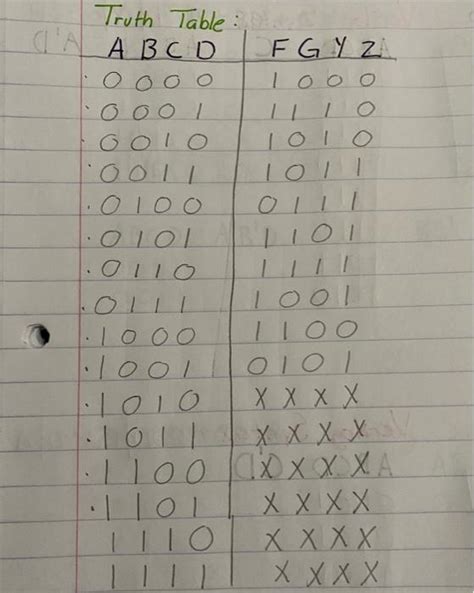 Truth Table:
A B C D F G Y Z
0 0 0 0 1 0 0 0
0 0 0 1 1 1 1 0
0 0 1 0 1 0 1 0
0 0 1 1 1 0 1 1
0 1 0 0 0 1 1 1
0 1 0 1 1 1 0 1
0 1 1 0 1 1 1 1
0 1 1 1 1 0 0 1
1 0 0 0 1 1 0 0
1 0 0 1 0 1 0 1
1 0 1 0 X X X X
1 0 1 1 X X X X
1 1 0 0 X X X X
1 1 0 1 X X X X
1 1 1 0 X X X X
1 1 1 1 X X X X